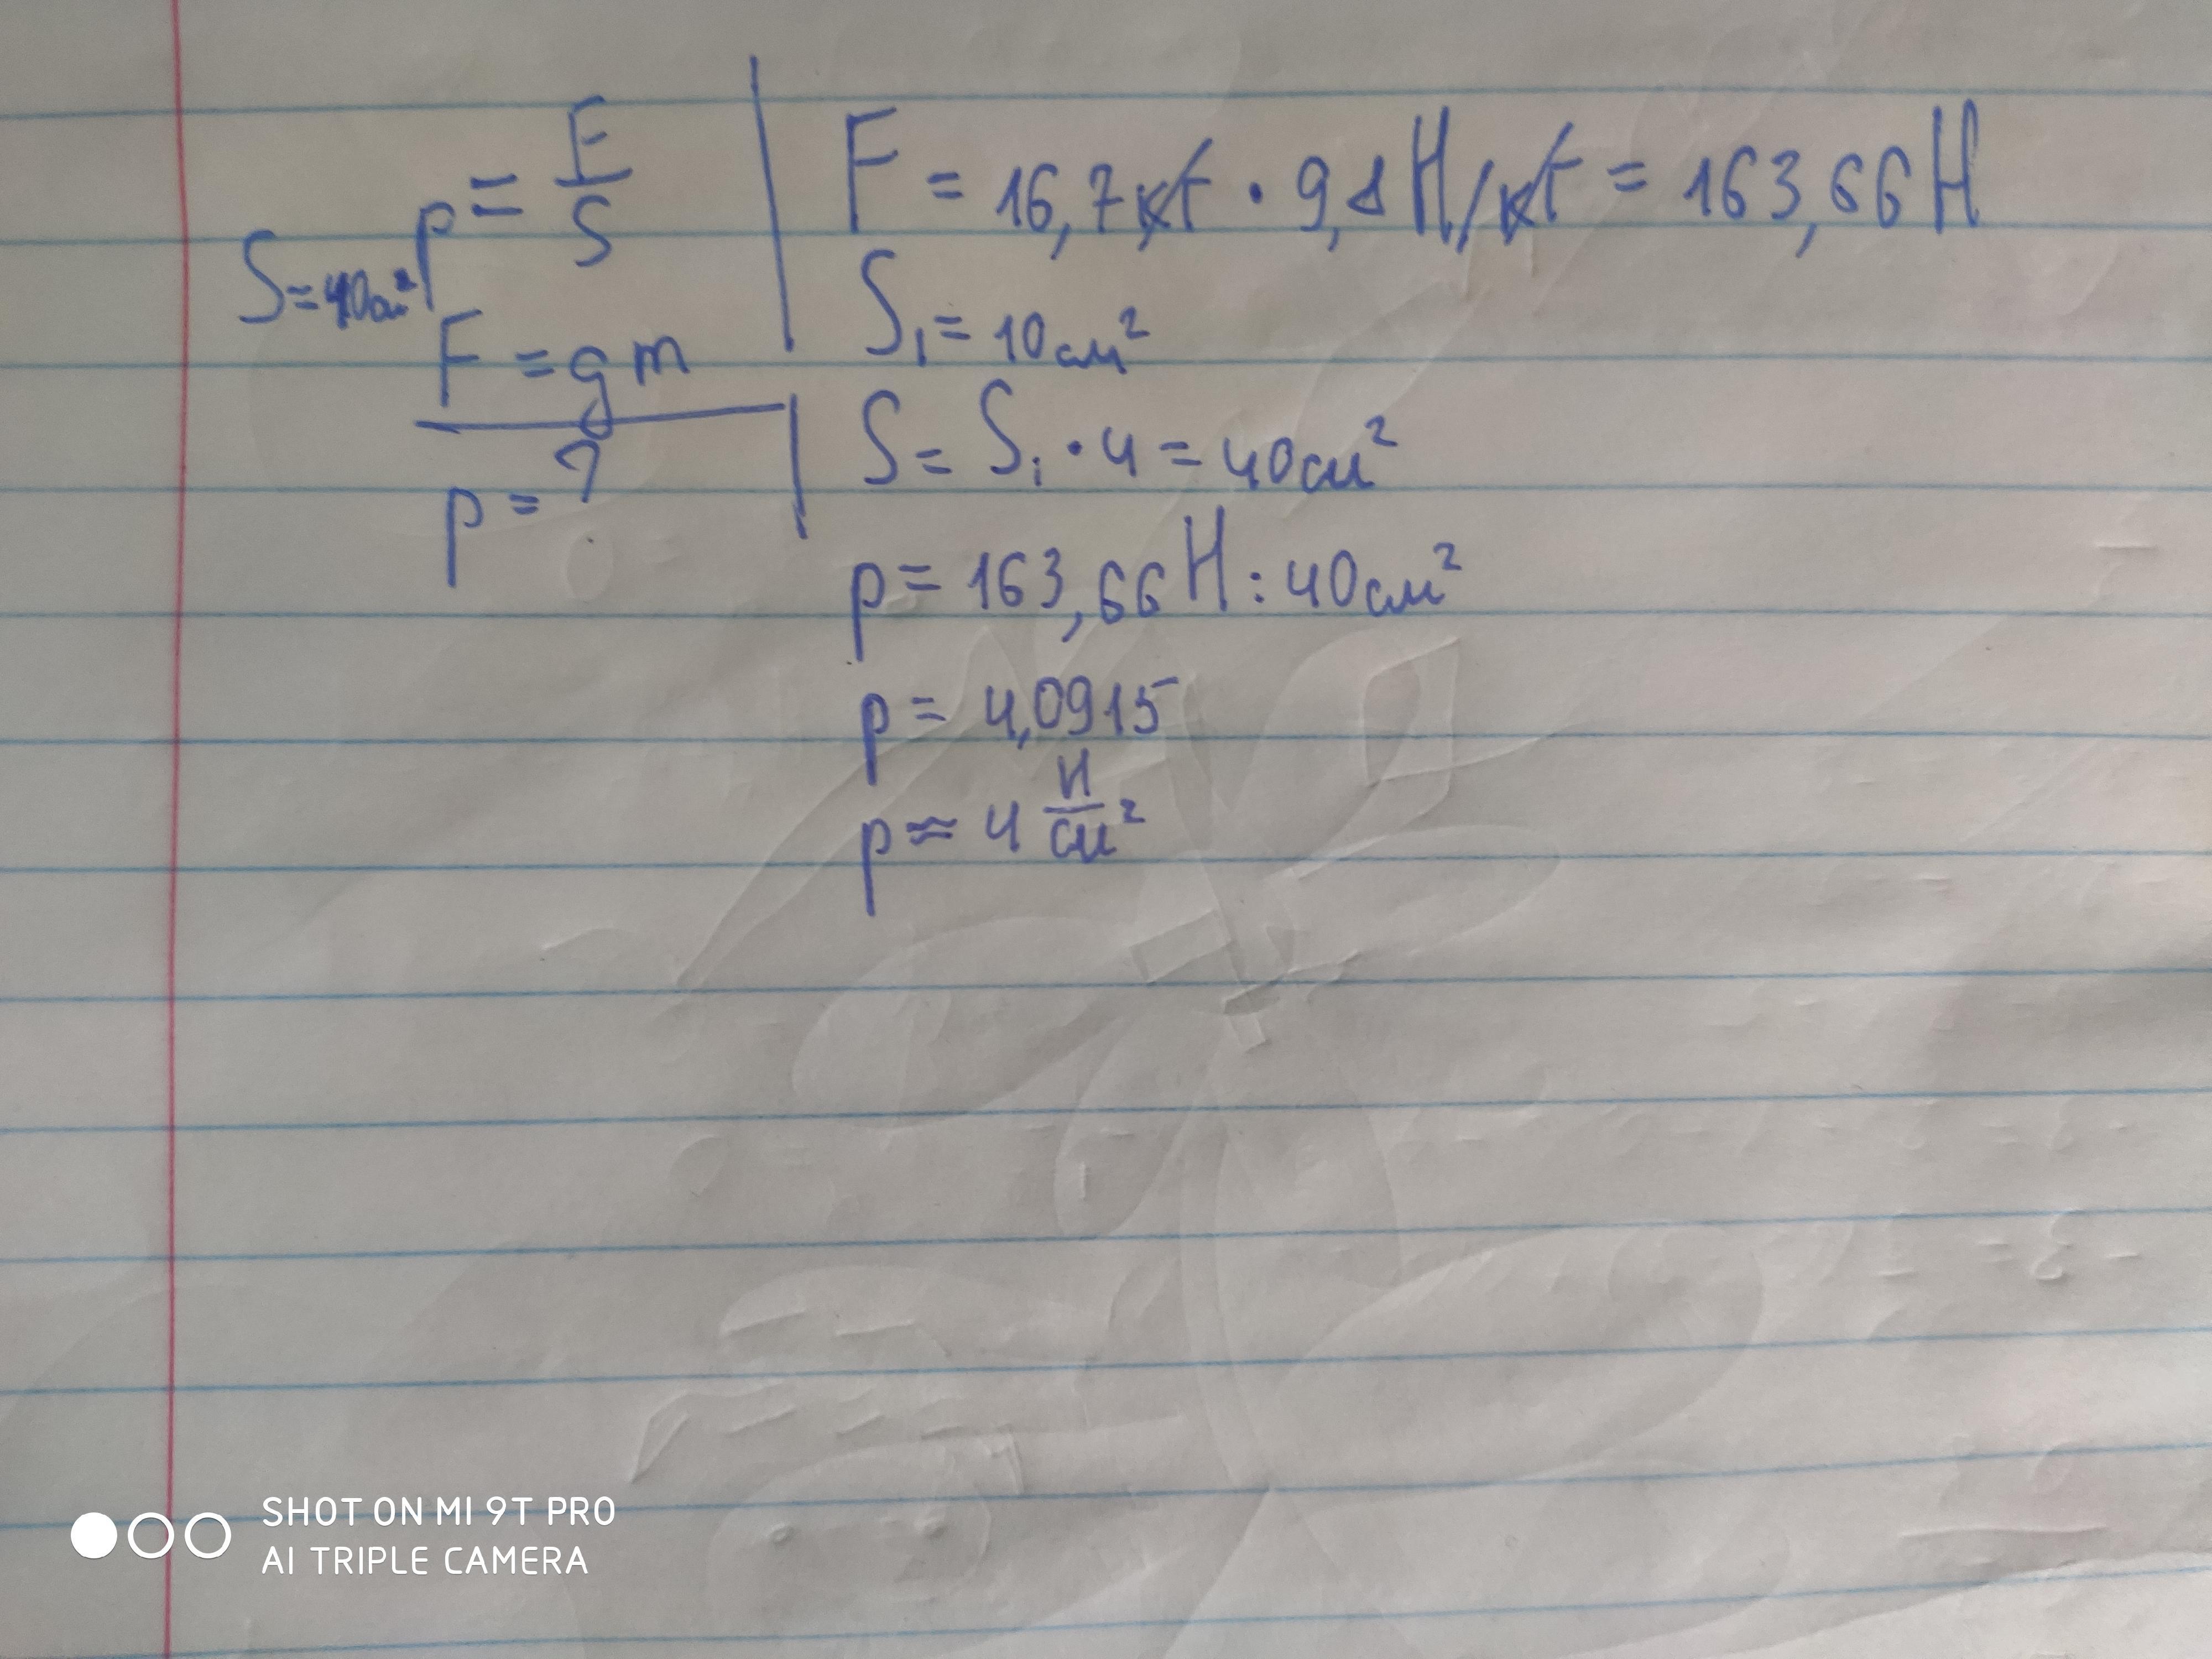 p = F/S
S = 40 см²
F = gm
p = ?
F = 16,7 кг · 9,8 Н/кг = 163,66 Н
S₁ = 10 см²
S = S₁ · 4 = 40 см²
p = 163,66 Н : 40 см²
p = 4,0915
p ≈ 4 Н/см²
SHOT ON MI 9T PRO
AI TRIPLE CAMERA